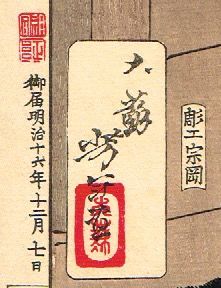 彫工宗岡
大蘇芳年
御届明治十六年十二月七日